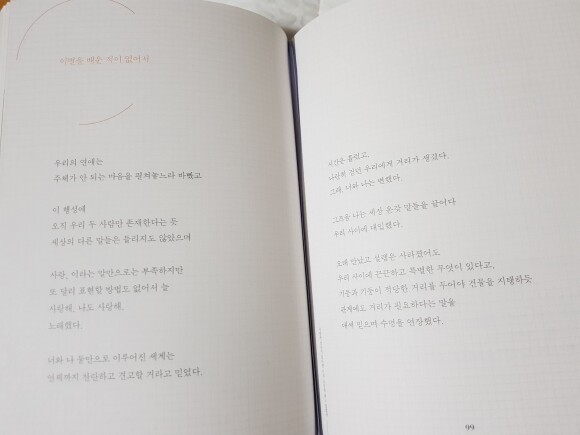 이별을 배운 적이 없어서
우리의 연애는
주체가 안 되는 마음을 펼쳐놓느라 바빴고
이 행성에
오직 우리 두 사람만 존재한다는 듯
세상의 다른 말들은 들리지도 않았으며
사랑, 이라는 말만으로는 부족하지만
또 달리 표현할 방법도 없어서 늘
사랑해, 나도 사랑해,
노래했다.
너와 나 둘만으로 이루어진 세계는
언제까지 찬란하고 견고할 거라고 믿었다.
시간은 흘렀고,
나란히 걷던 우리에게 거리가 생겼다.
그래, 너와 나는 변했다.
그즈음 나는 세상 온갖 말들을 끌어다
우리 사이에 대입했다.
오래 만났고 설렘은 사라졌어도
우리 사이에 끈끈하고 특별한 무엇이 있다고,
기둥과 기둥이 적당한 거리를 두어야 건물을 지탱하듯
관계에도 거리가 필요하다는 말을
애써 믿으며 수명을 연장했다.
99